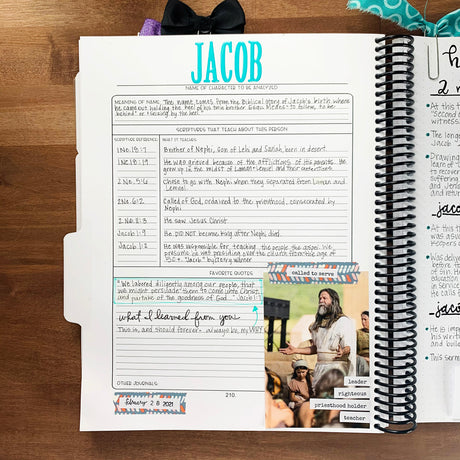 JACOB
NAME OF CHARACTER TO BE ANALYZED
MEANING OF NAME The name comes from the Biblical story of Jacob's birth where
he came out holding the heel of his twin brother Esau. Means "to follow, to be
behind" or "seizing by the heel"
SCRIPTURES THAT TEACH ABOUT THIS PERSON
SCRIPTURE REFERENCE WHAT IT TEACHES
1 Ne. 18:7 Brother of Nephi, son of Lehi and Sariah, born in desert.
1 Ne. 18:19 He was grieved because of the afflictions of his parents. He
grew up in the midst of Laman, Lemuel and their contentions.
2 Ne. 5:6 Chose to go with Nephi when they separated from Laman and
Lemuel.
2 Ne. 6:2 Called of God, ordained to the priesthood, consecrated by
Nephi
2 Ne. 2:3 He saw Jesus Christ
Jacob 1:9 He DID NOT become king after Nephi died.
Jacob 1:2 He was responsible for teaching the people the gospel. We
presume he was presiding over the church
"Jacob" by
FAVORITE QUOTES
"We labored diligently among our people, that
we might persuade them to come unto Christ,
and partake of the goodness of God..." Jacob 1:7
what I learned from you
This is, and should forever always be, my WHY
OTHER JOURNALS:
February 28 2021
210
called to serve
leader
righteous
priesthood holder
teacher
h
2 n
At this t
"Second
witness
The long
Jacob
Drawing
learn
to recove
jaco
At this t
was
Was deliv
before
of sin
He
education
in Service
He calls
jaco
He is imp
This serm